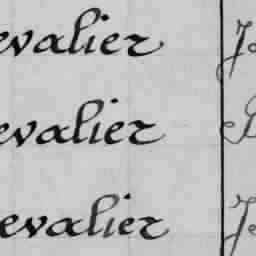 evalier Je
evalier B
evalier Je